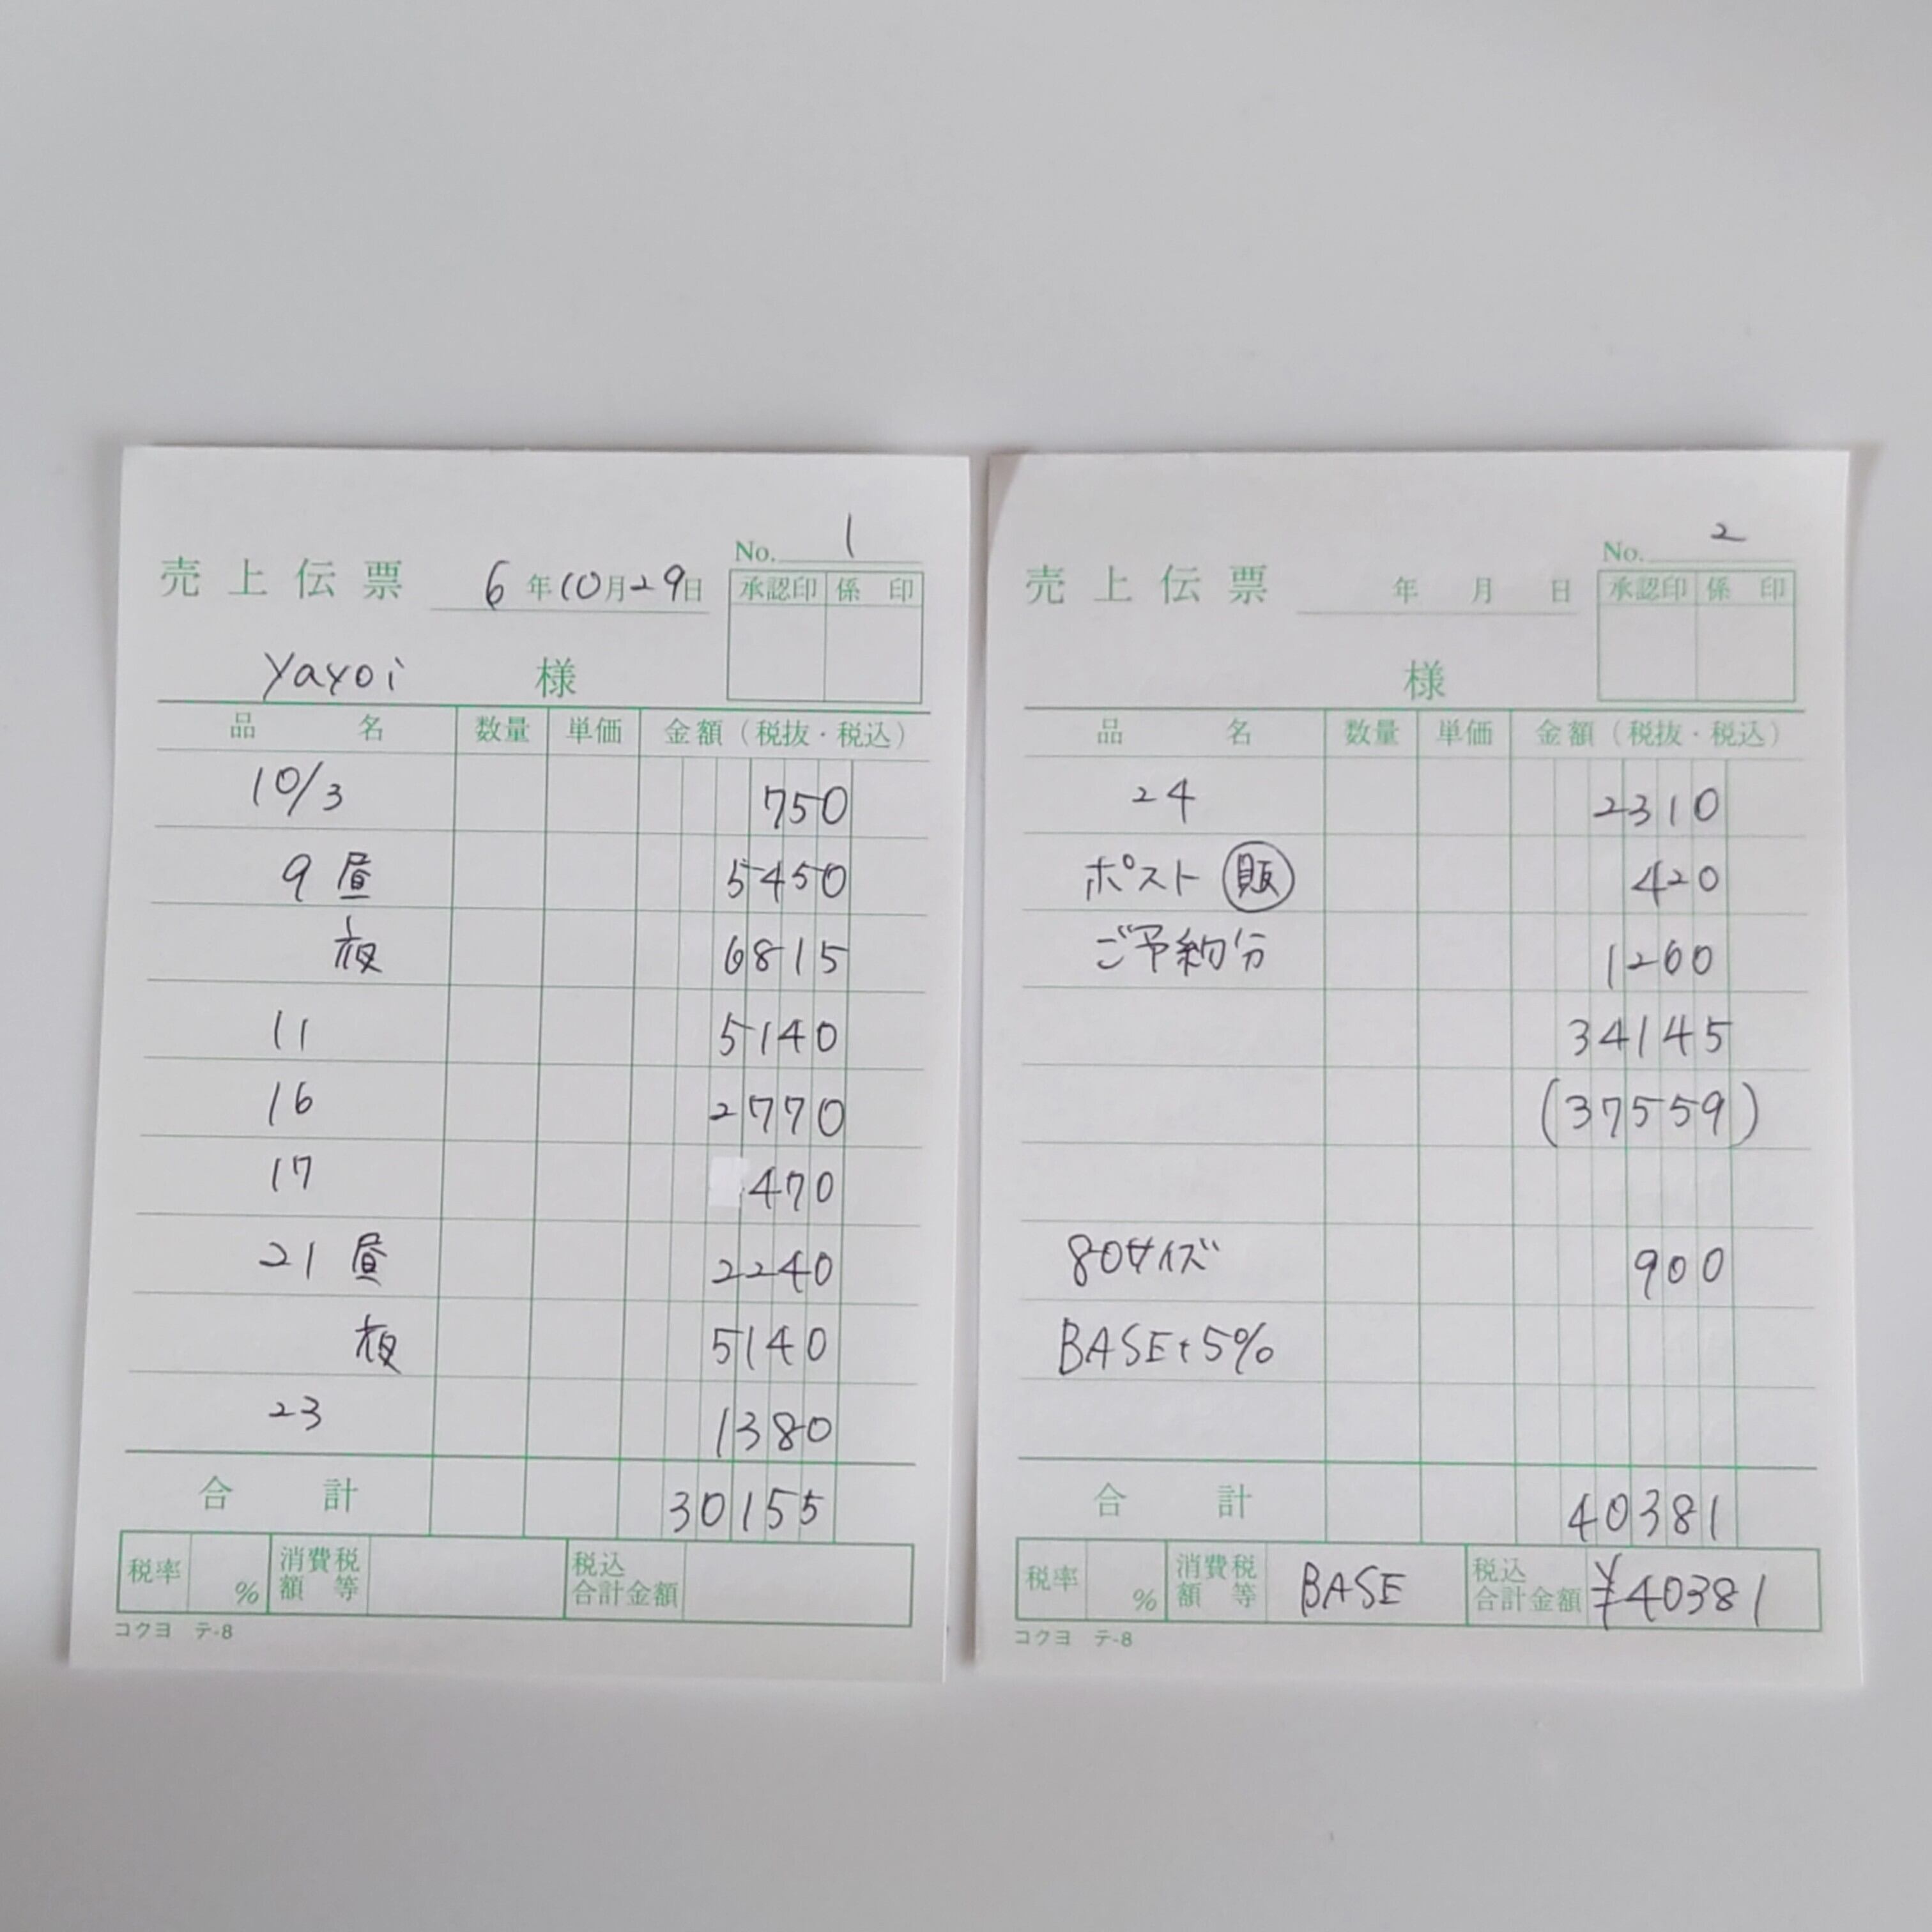 No. 1
売上伝票 6年10月29日
承認印 係印
yayoi 様
品名 数量 単価 金額(税抜・税込)
10/3 750
9 昼 5450
夜 6815
11 5140
16 2770
17 470
21 昼 2240
夜 5140
23 1380
合計 30155
税率 % 消費税額等 税込合計金額
コクヨ テ-8
No. 2
売上伝票 年 月 日
承認印 係印
様
品名 数量 単価 金額(税抜・税込)
24 2310
ポスト 販 420
ご予約分 1260
34145
(37559)
80サイズ 900
BASE+5%
合計 40381
税率 % 消費税額等 BASE 税込合計金額 ¥40381
コクヨ テ-8